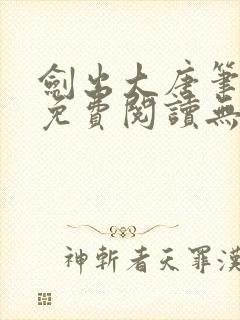 劍出大唐筆
免費閱讀無
神斬者天罪漢